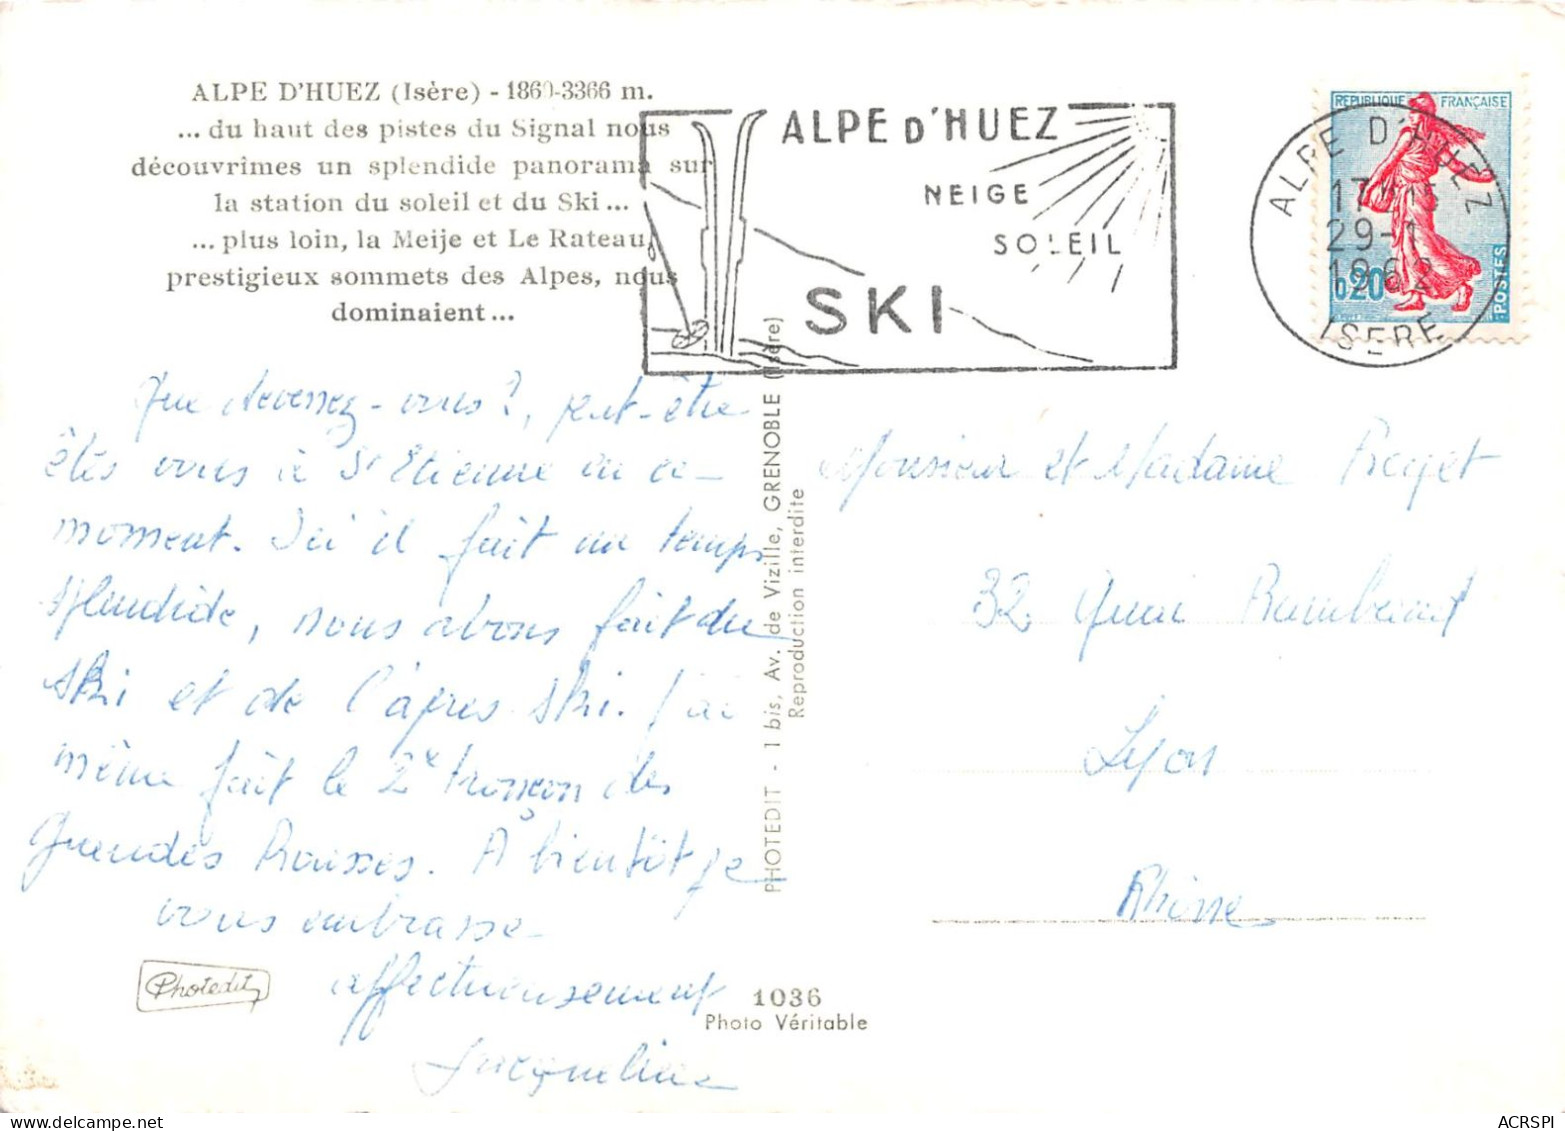 ALPE D'HUEZ (Isère) - 1860-3366 m.
... du haut des pistes du Signal nous
découvrîmes un splendide panorama sur
la station du soleil et du Ski ...
... plus loin, la Meije et Le Rateau,
prestigieux sommets des Alpes, nous
dominaient ...
ALPE D'HUEZ
NEIGE
SOLEIL
SKI
REPUBLIQUE FRANÇAISE
0,20
POSTES
ALPE D'HUEZ
29-1
1962
ISERE
Que devenez-vous ?, peut-être
êtes vous à St Etienne en ce
moment. Ici il fait un temps
splendide, nous avons fait du
ski et de l'après ski. J'ai
même fait le 2e tronçon des
Grandes Rousses. A bientôt je
vous embrasse
affectueusement
Jacqueline
Photedit
PHOTEDIT - 1 bis, Av. de Vizille, GRENOBLE (Isère)
Reproduction interdite
1036
Photo Véritable
Monsieur et Madame
32 Quai Rambaud
Lyon
Rhône
ACRSPI